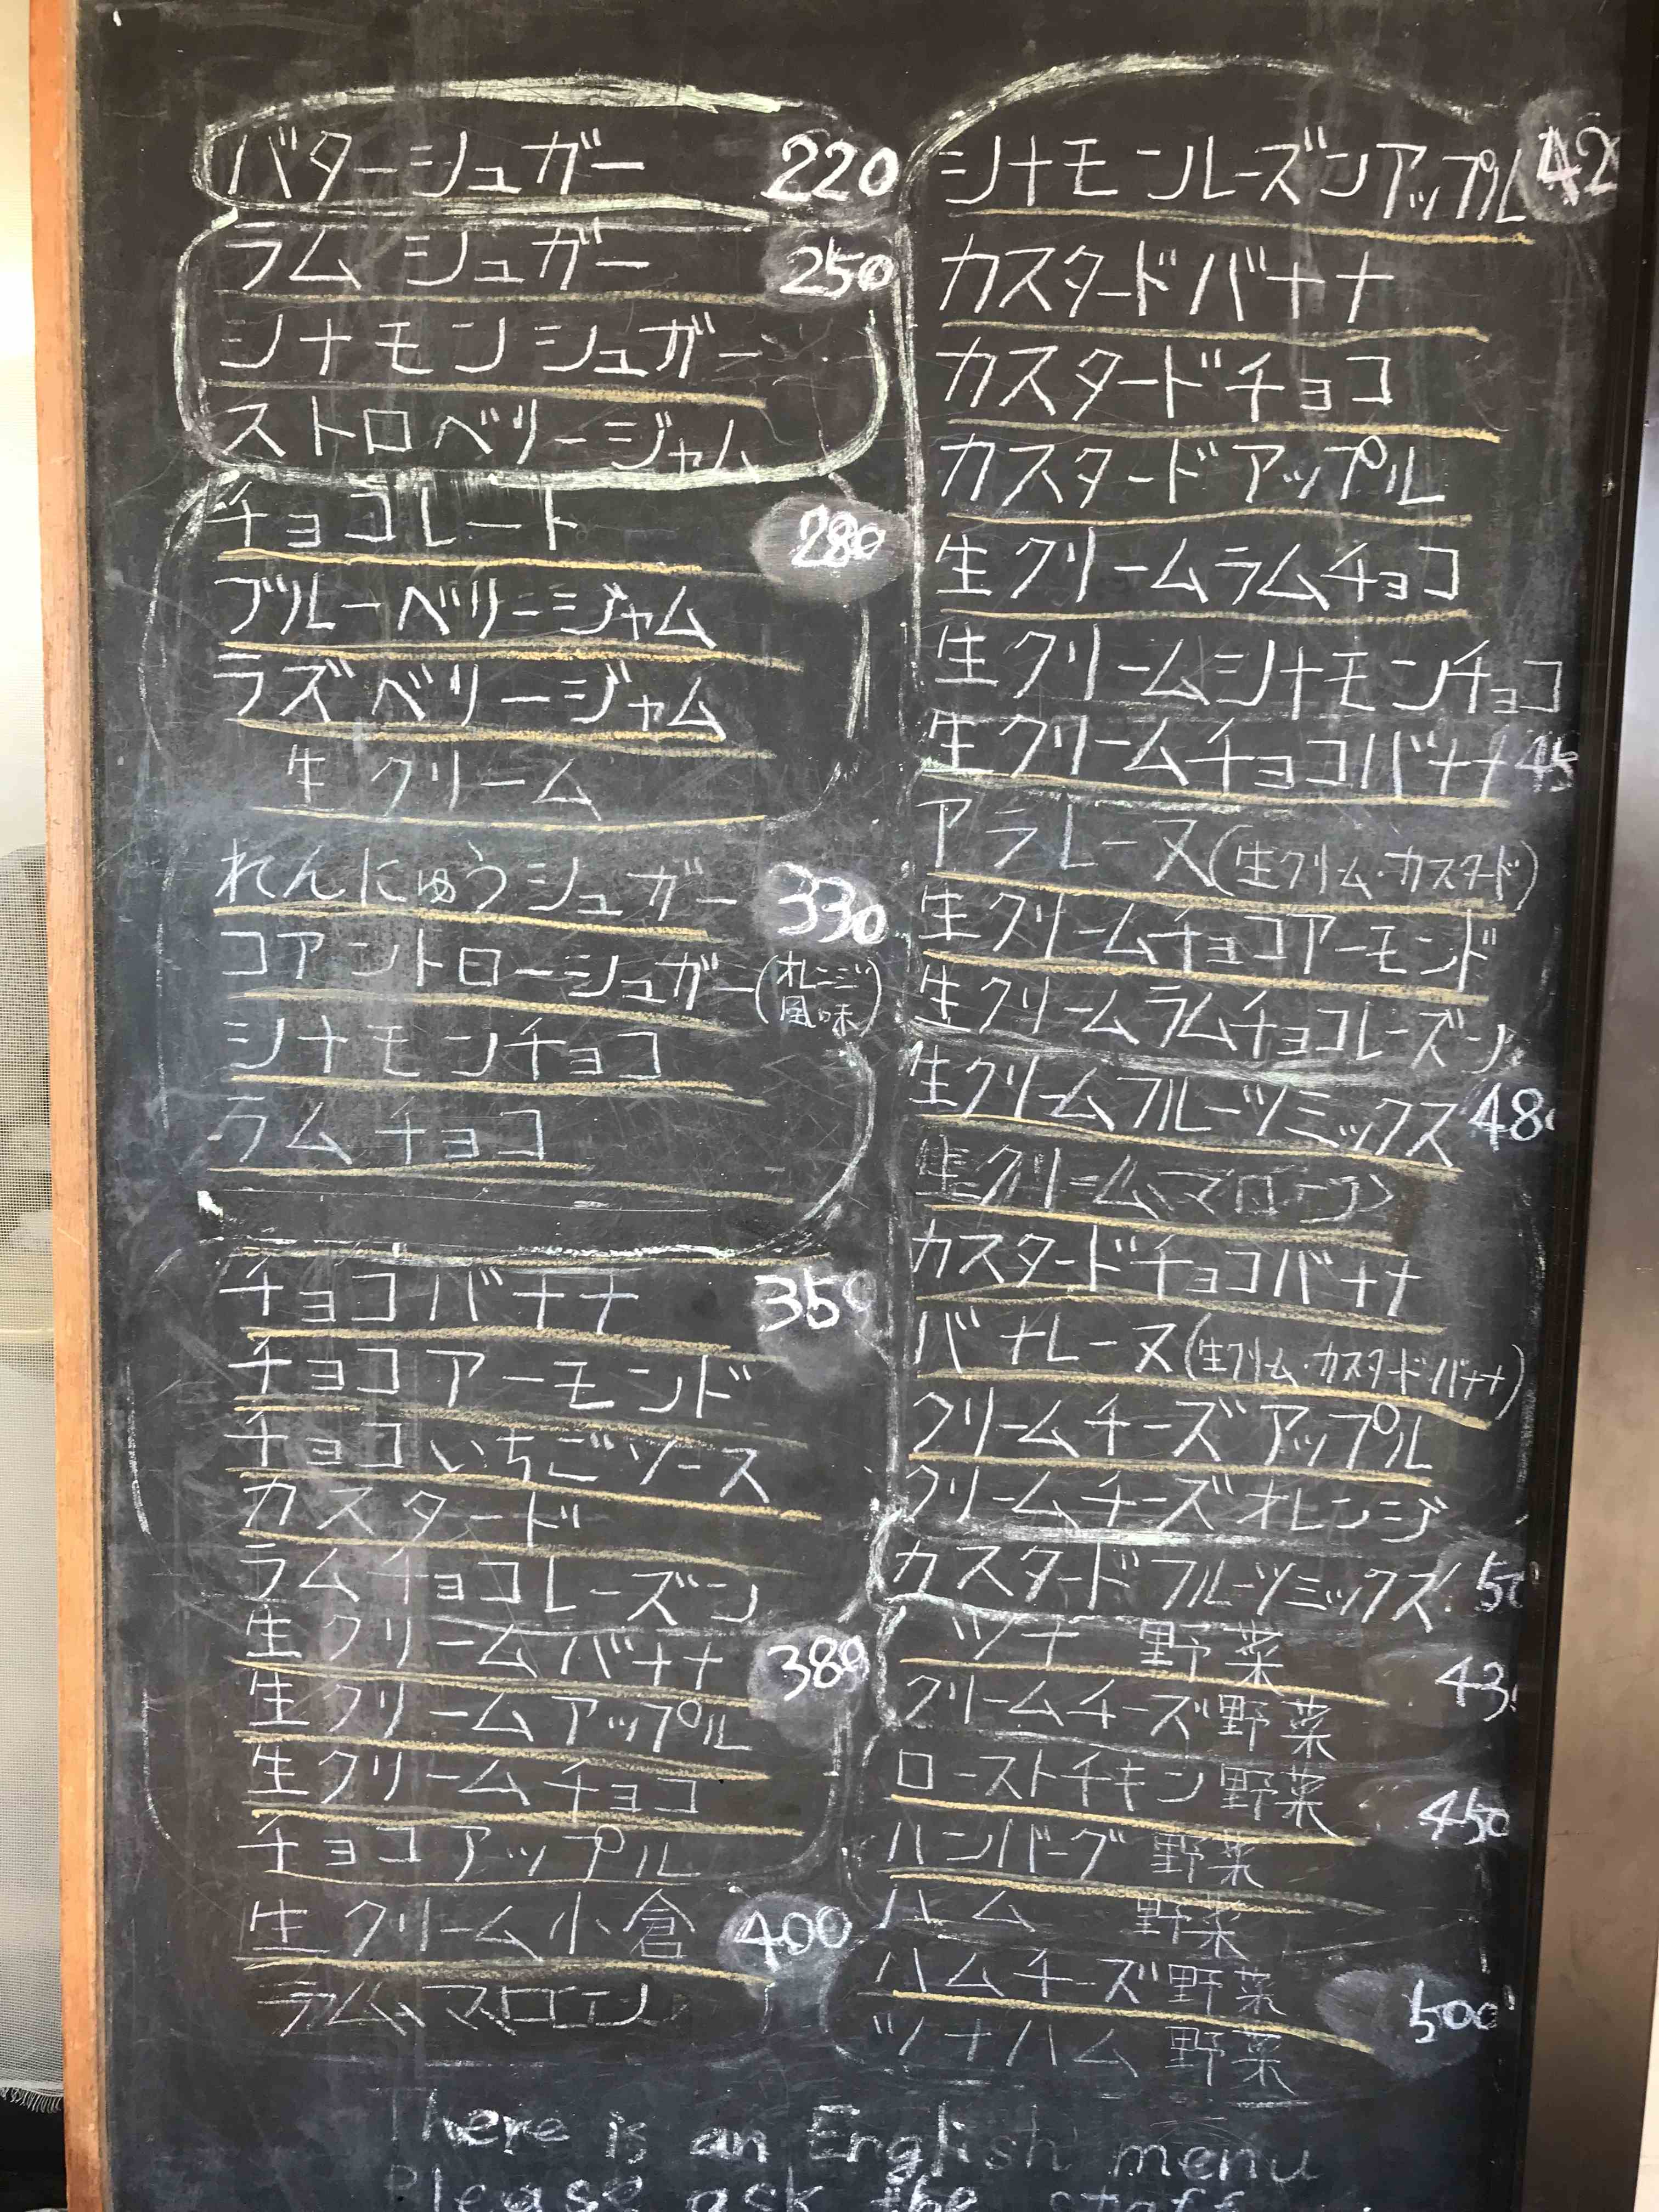 バターシュガー 220
ラムシュガー 250
シナモンシュガー
ストロベリージャム
チョコレート 280
ブルーベリージャム
ラズベリージャム
生クリーム
れんにゅうシュガー 330
コアントローシュガー(オレンジ風味)
シナモンチョコ
ラムチョコ
チョコバナナ 350
チョコアーモンド
チョコいちごソース
カスタード
ラムチョコレーズン
生クリームバナナ 380
生クリームアップル
生クリームチョコ
チョコアップル
生クリーム小倉 400
ラムマロン
シナモンレーズンアップル 42
カスタードバナナ
カスタードチョコ
カスタードアップル
生クリームラムチョコ
生クリームシナモンチョコ
生クリームチョコバナナ 45
アラレーヌ(生クリーム・カスタード)
生クリームチョコアーモンド
生クリームラムチョコレーズン
生クリームフルーツミックス 48
生クリームマローン
カスタードチョコバナナ
バナレーヌ(生クリーム・カスタード・バナナ)
クリームチーズアップル
クリームチーズオレンジ
カスタードフルーツミックス 50
ツナ 野菜
クリームチーズ野菜 43
ローストチキン野菜
ハンバーグ 野菜 450
ハム 野菜
ハムチーズ野菜 500
ツナハム 野菜
There is an English menu
Please ask the staff